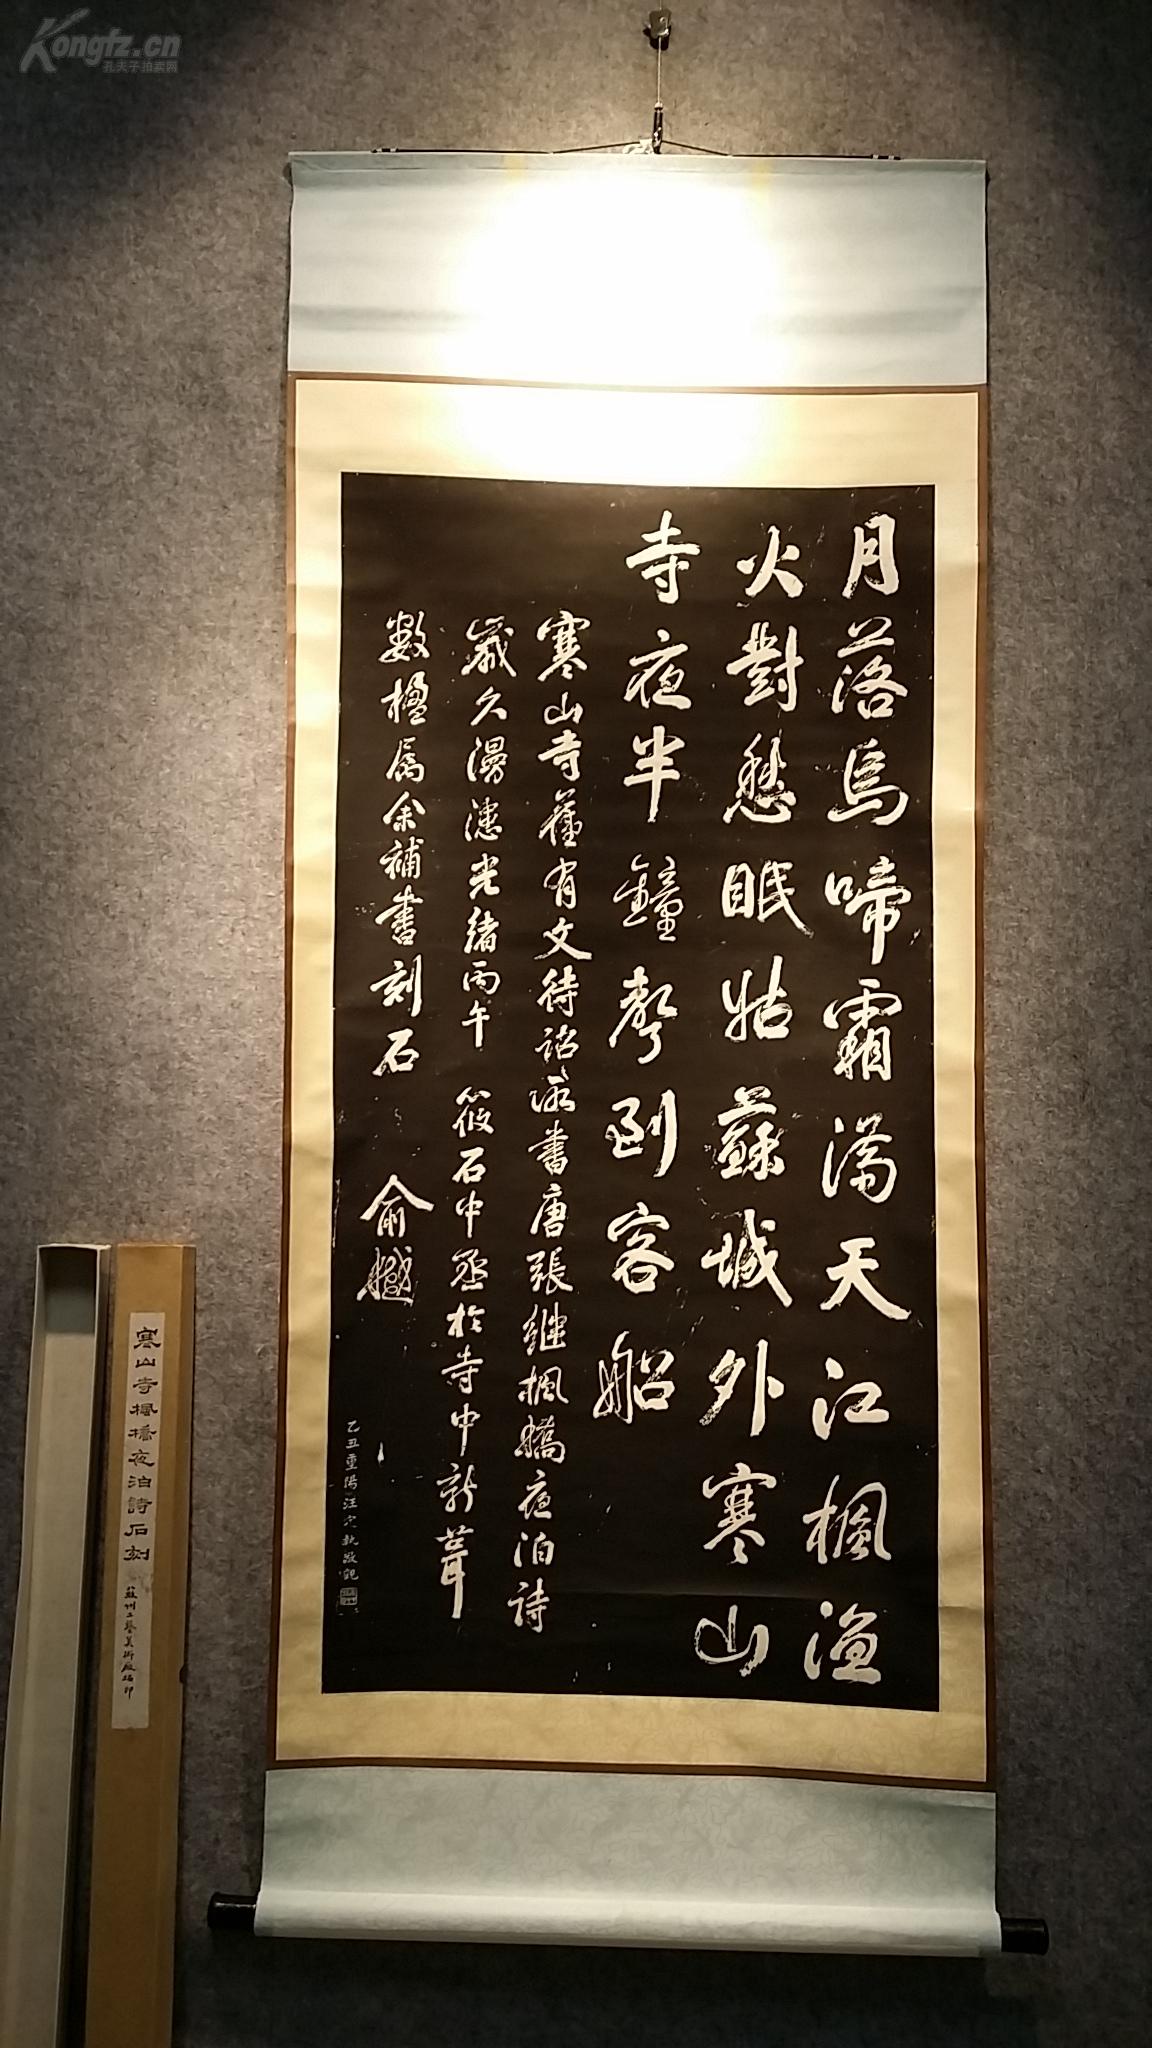 月落烏啼霜滿天江楓漁
火對愁眠姑蘇城外寒山
寺夜半鐘聲到客船
寒山寺舊有文待詔所書唐張繼楓橋夜泊詩
歲久漫漶光緒丙午 筱石中丞於寺中新葺
數楹屬余補書刻石 俞樾
乙丑重陽汪 秋敬觀
寒山寺楓橋夜泊詩石刻
蘇州工藝美術廠拓印
Kongfz.cn
孔夫子拍卖网